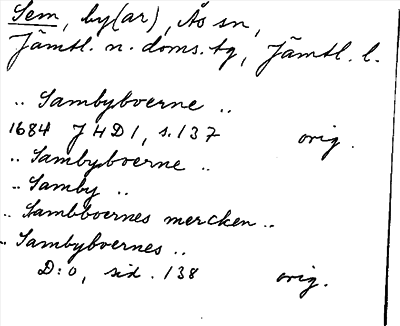 Sem, by(ar), Ås sn,
Jämtl. n. doms. tg, Jämtl. l.
.. Sambyboerne ..
1684 J4D1, s. 137 orig.
.. Sambyboerne ..
.. Samby ..
.. Sambboernes mercken ..
.. Sambyboernes ..
D:o, sid. 138 orig.